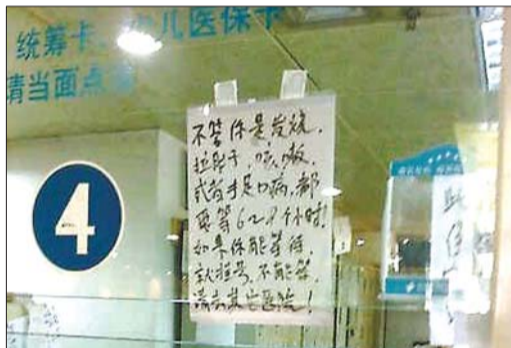 统筹卡、少儿医保卡
请当面点清
4
不管你是发烧，
拉肚子，咳嗽，
或者手足口病，都
要等6~8个小时！
如果你能等待，
就挂号，不能等，
请去其它医院！